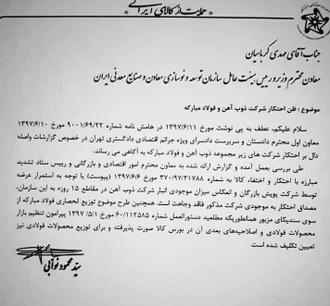 حمایت از کالای ایرانی
جناب آقای مهدی کرباسیان
معاون محترم وزیر و رییس هیئت عامل سازمان توسعه و نوسازی معادن و صنایع معدنی ایران
موضوع: ظن احتکار شرکت ذوب آهن و فولاد مبارکه
سلام علیکم، عطف به پی نوشت مورخ ۱۳۹۷/۶/۱۱ در هامش نامه شماره ۹۰۰۱/۶۹/۲۳ مورخ ۱۳۹۷/۶/۱۰
معاون اول محترم دادستان و سرپرست دادسرای ویژه جرائم اقتصادی دادگستری تهران در خصوص گزارشات واصله
دال بر احتکار شرکت های زیر مجموعه ذوب آهن و فولاد مبارکه به آگاهی می رساند.
طی بررسی بعمل آمده و گزارش ارائه شده به معاون محترم امور اقتصادی و بازرگانی و رییس ستاد تشدید
مبارزه با احتکار و اختفاء کالا به شماره ۳۷۰/۹۷/۳۱۷۸۸ مورخ ۹۷/۶/۶ (پیوست) با توجه به استمرار عرضه
توسط شرکت پویش بازرگان و انعکاس میزان موجودی انبار شرکت ذوب آهن در مقاطع ۱۵ روزه به این سازمان،
مصداق احتکار به موجودی شرکت مذکور فاقد وجاهت است. همچنین طرح موضوع توزیع انحصاری فولاد مبارکه از
سوی سندیکای مزبور همانطوریکه مطلعید دستورالعمل شماره ۶۰/۱۱۲۵۸۵ مورخ ۱۳۹۷/۵/۱ پیرامون تنظیم بازار
محصولات فولادی و اصلاحیه‌های بعدی آن در بورس کالا صورت پذیرفته و برای توزیع محصولات فولادی نیز
تعیین تکلیف شده است.
سید محمود نوابی